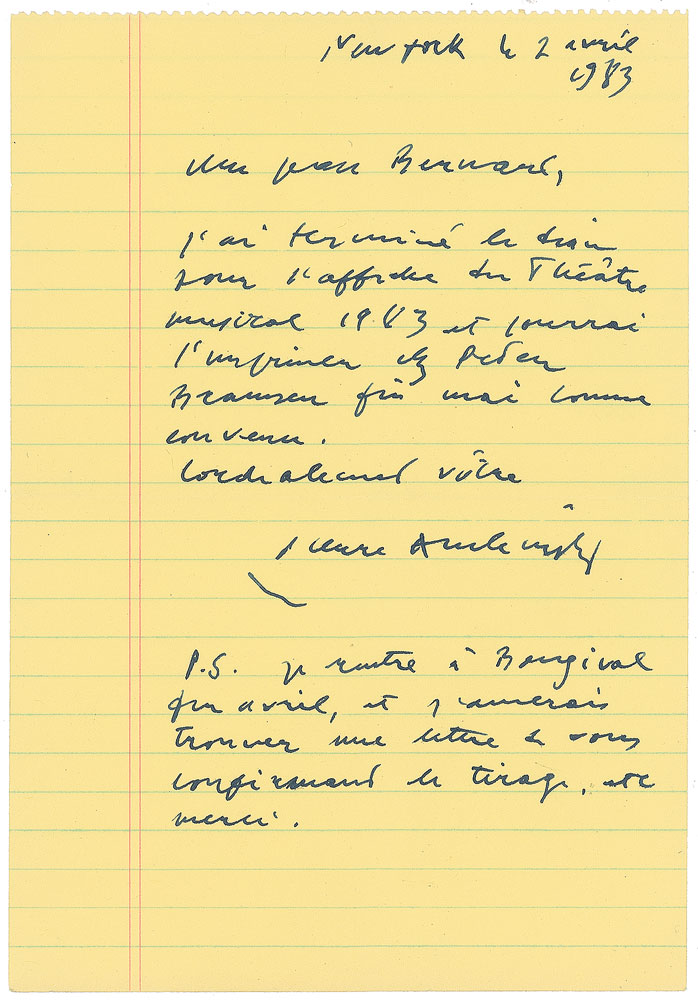 New York le 2 avril
1983
Mon Jean Bernard,
j'ai terminé le dessin
pour l'affiche du Théâtre
musical 1983 et pourrai
l'imprimer chez Peter
Bramsen fin mai comme
convenu.
Cordialement vôtre
Pierre Alechinsky
P.S. je rentre à Bougival
fin avril, et j'aimerais
trouver une lettre de vous
confirmant le tirage, etc
merci.